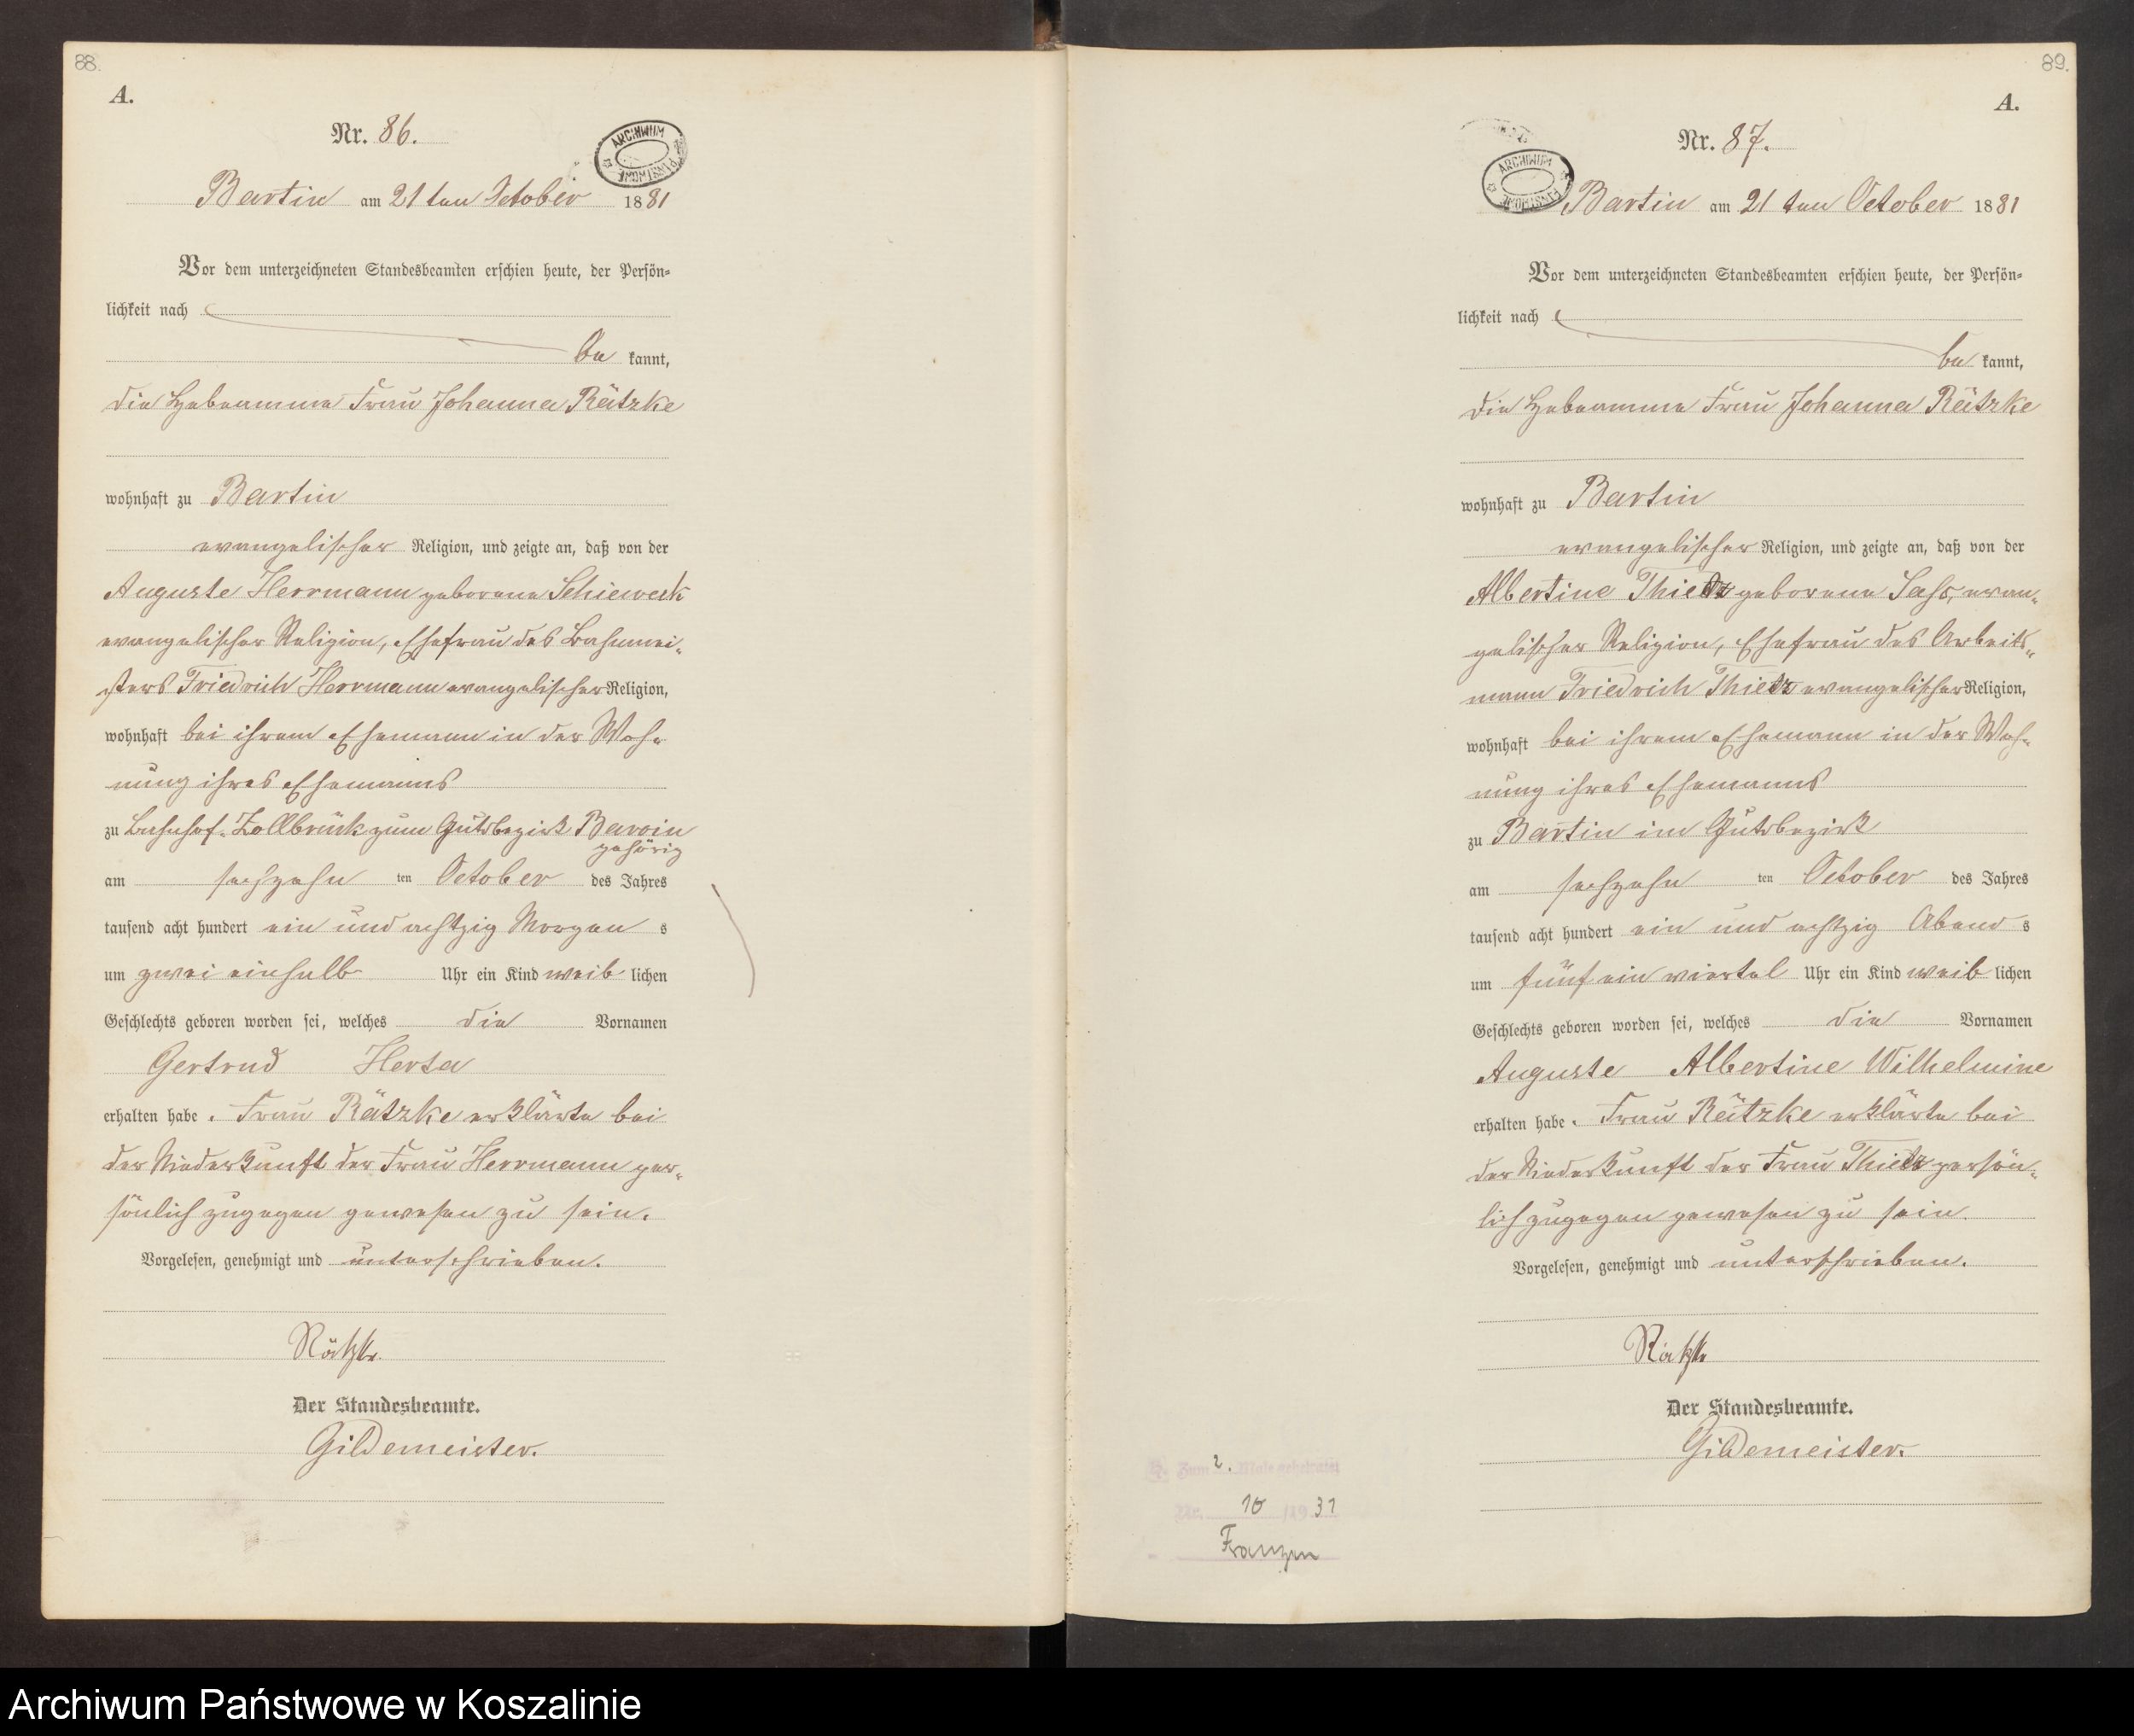 88.
A.
Nr. 86.
ARCHIWUM PAŃSTWOWE
Bartin am 21 ten October 1881
Vor dem unterzeichneten Standesbeamten erschien heute, der Persön=
lichkeit nach
be kannt,
die Hebeamme Frau Johanna Rätzke
wohnhaft zu Bartin
evangelischer Religion, und zeigte an, daß von der
Auguste Herrmann geborene Schieweck
evangelischer Religion, Ehefrau des Bahnmei=
sters Friedrich Herrmann evangelischer Religion,
wohnhaft bei ihrem Ehemann in der Woh=
nung ihres Ehemanns
zu Bahnhof=Zollbrück zum Gutsbezirk Barvin
gehörig
am sechzehn ten October des Jahres
tausend acht hundert ein und achtzig Morgen s
um zwei einhalb Uhr ein Kind weib lichen
Geschlechts geboren worden sei, welches die Vornamen
Gertrud Herta
erhalten habe. Frau Rätzke erklärte bei
der Niederkunft der Frau Herrmann per=
sönlich zugegen gewesen zu sein.
Vorgelesen, genehmigt und unterschrieben.
Rätzke.
Der Standesbeamte.
Gildemeister.
89.
A.
Nr. 87.
ARCHIWUM PAŃSTWOWE
Bartin am 21 ten October 1881
Vor dem unterzeichneten Standesbeamten erschien heute, der Persön=
lichkeit nach
be kannt,
die Hebeamme Frau Johanna Rätzke
wohnhaft zu Bartin
evangelischer Religion, und zeigte an, daß von der
Albertine Thietz geborene Sass, evan=
gelischer Religion, Ehefrau des Arbeits=
mann Friedrich Thietz evangelischer Religion,
wohnhaft bei ihrem Ehemann in der Woh=
nung ihres Ehemanns
zu Bartin im Gutsbezirk
am sechzehn ten October des Jahres
tausend acht hundert ein und achtzig Abend s
um fünf ein viertel Uhr ein Kind weib lichen
Geschlechts geboren worden sei, welches die Vornamen
Auguste Albertine Wilhelmine
erhalten habe. Frau Rätzke erklärte bei
der Niederkunft der Frau Thietz persön=
lich zugegen gewesen zu sein.
Vorgelesen, genehmigt und unterschrieben.
Rätzke
Der Standesbeamte.
Gildemeister.
Zum 2. Male geheiratet
Nr. 10 /19 31
Franzen
Archiwum Państwowe w Koszalinie